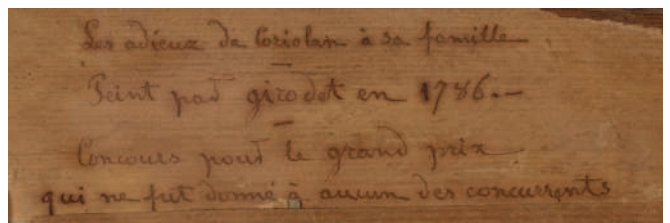 Les adieux de Coriolan à sa famille
Peint par girodet en 1786.—
Concours pour le grand prix
qui ne fut donné à aucun des concurrents